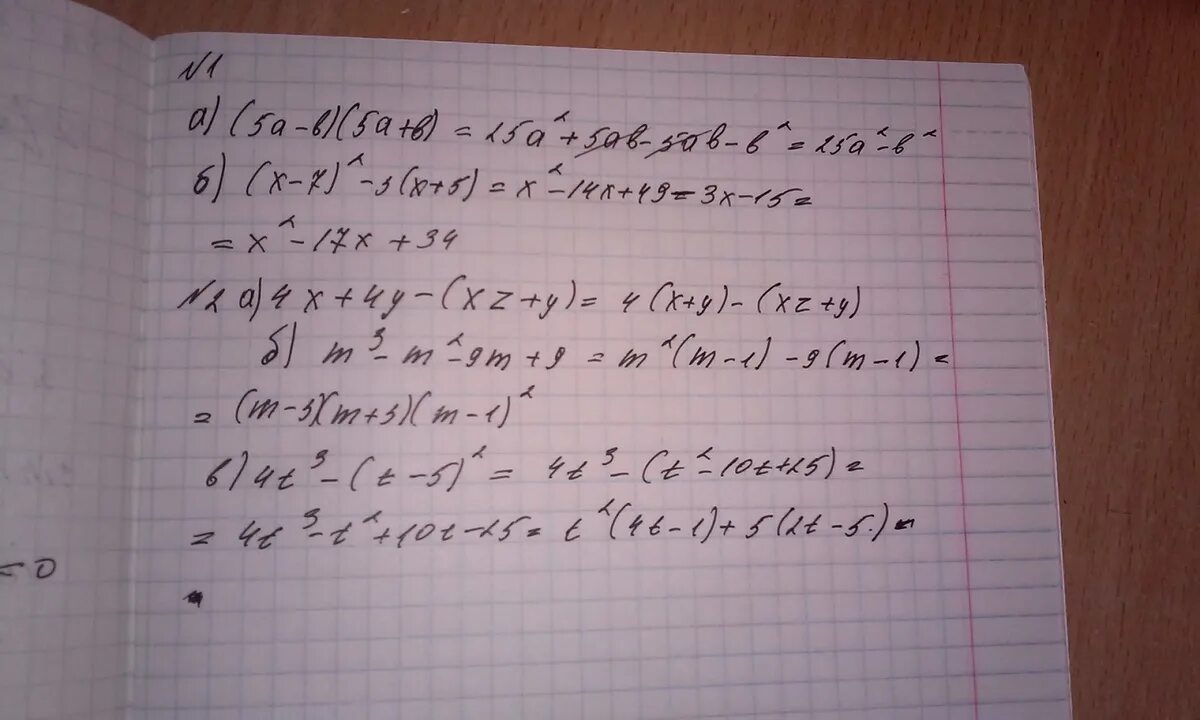 N1
а) (5a-b)(5a+b) = 25a²+5ab-5ab-b² = 25a²-b²
б) (x-7)²-3(x+5) = x²-14x+49-3x-15=
= x²-17x+34
N2 а) 4x+4y-(xz+y)= 4(x+y)-(xz+y)
б) m³-m²-9m+9 = m²(m-1)-9(m-1)=
= (m-3)(m+3)(m-1)²
в) 4t³-(t-5)² = 4t³-(t²-10t+25)=
= 4t³-t²+10t-25= t²(4t-1)+5(2t-5)-
=0